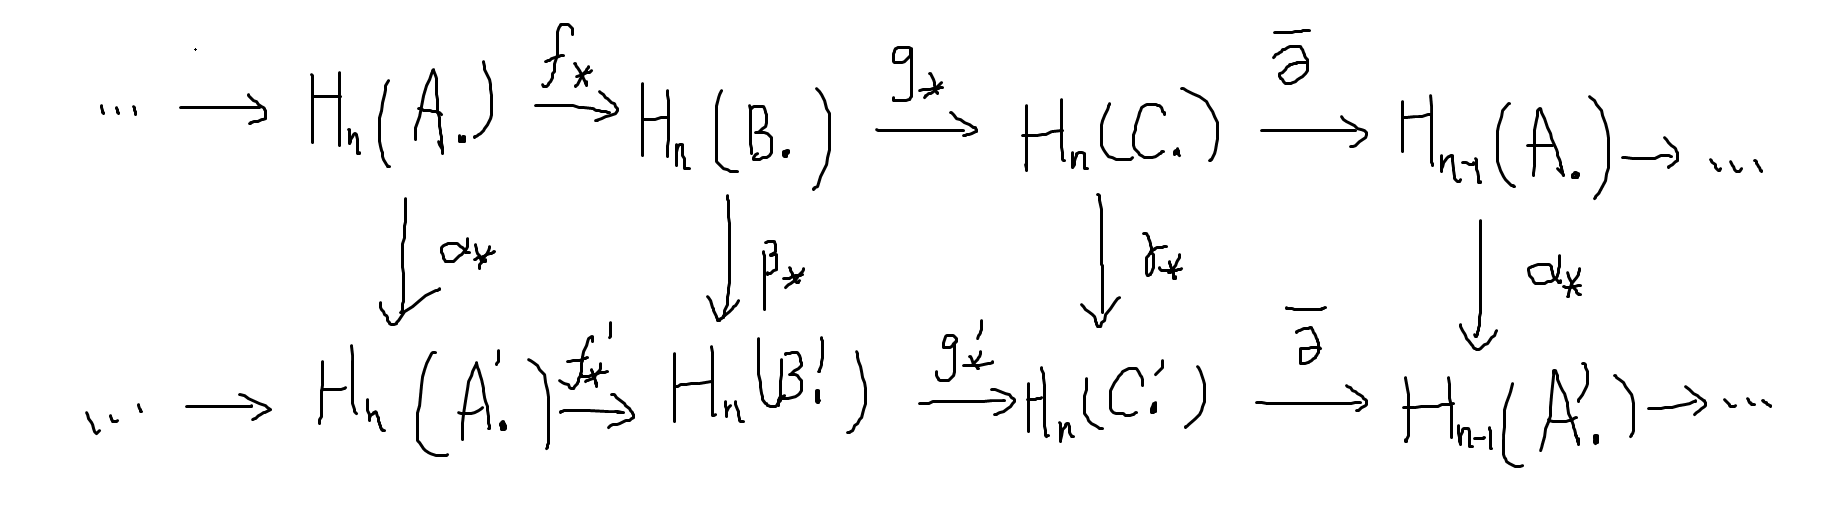 ... → Hₙ(A.) f_* → Hₙ(B.) g_* → Hₙ(C.) ∂̄ → Hₙ₋₁(A.) → ...
↓ α_* ↓ β_* ↓ γ_* ↓ α_*
... → Hₙ(A'.) f'_* → Hₙ(B'.) g'_* → Hₙ(C'.) ∂̄ → Hₙ₋₁(A'.) → ...